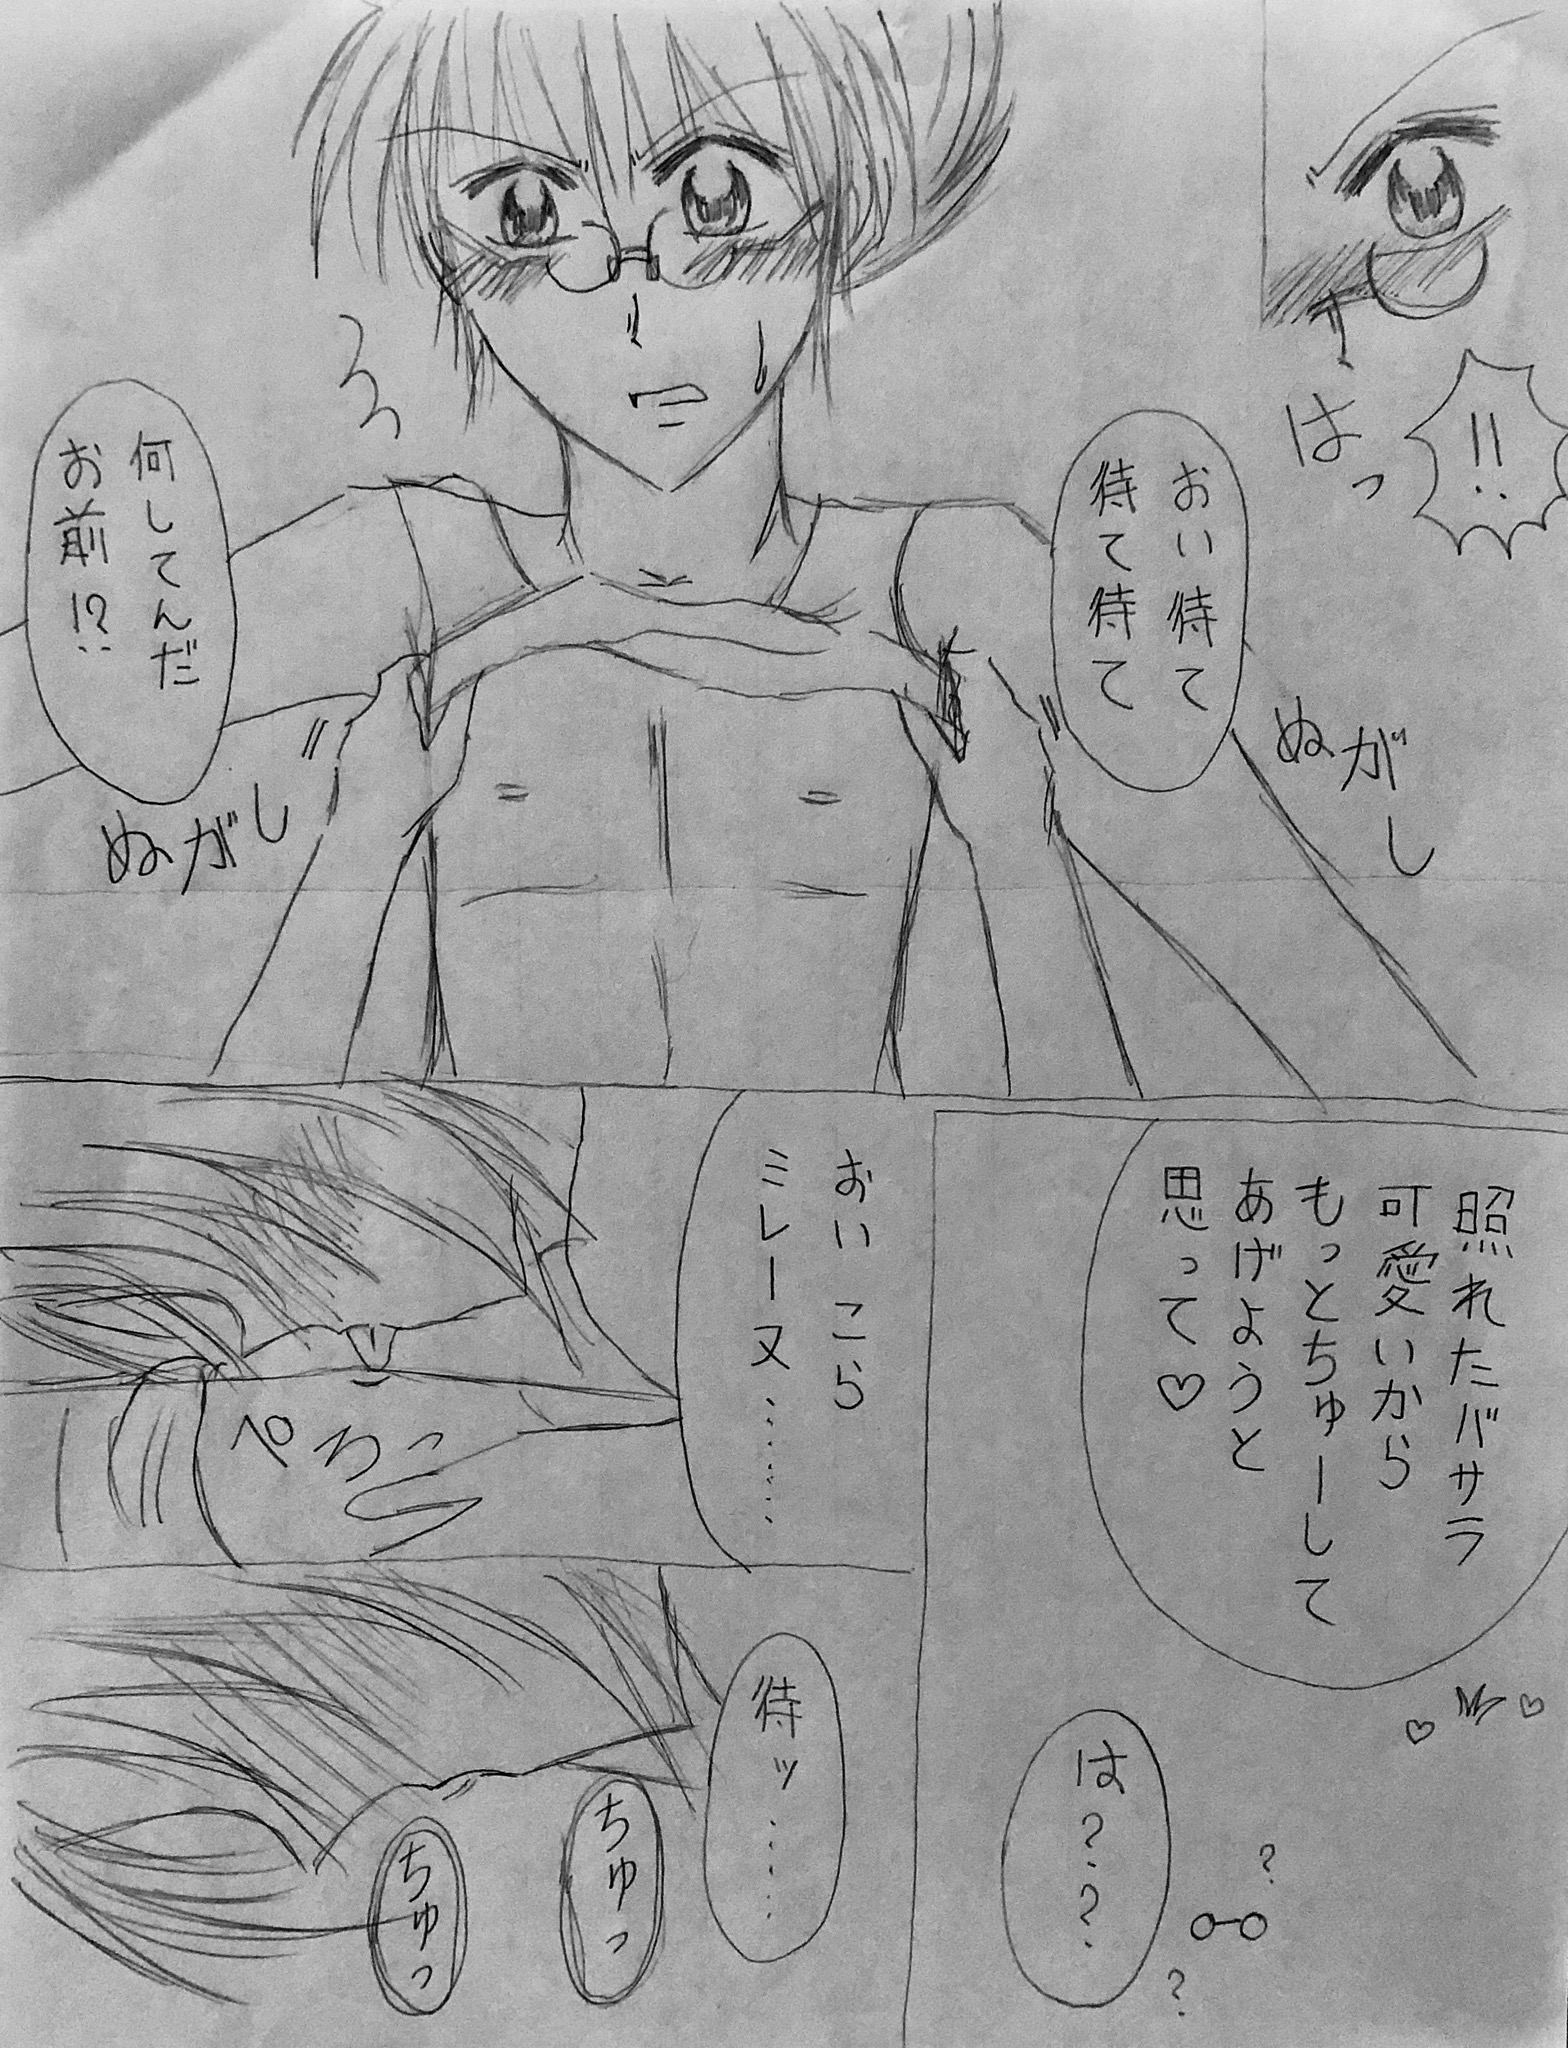 !!
はっ
おい待て
待て待て
ぬがし
何してんだ
お前!?
ぬがし
照れたバサラ
可愛いから
もっとちゅーして
あげようと
思って♡
は??
?
?
おいこら
ミレーヌ………
ぺろっ
待ッ……
ちゅっ
ちゅっ